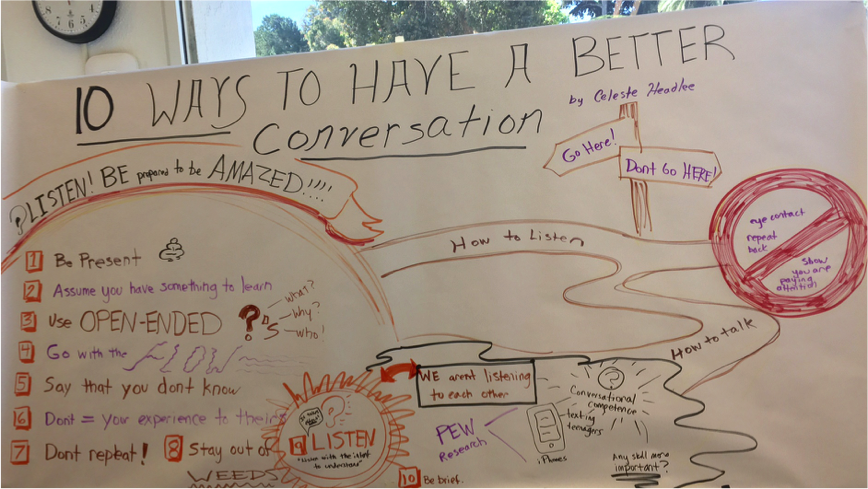 10 WAYS TO HAVE A BETTER
Conversation
by Celeste Headlee
Go Here!
Dont Go HERE!
LISTEN! BE prepared to be AMAZED!!!!
How to Listen
eye contact
repeat
back
Show
you are
paying
attention
How to talk
1 Be Present
2 Assume you have something to learn
3 Use OPEN-ENDED ?'s
what?
why?
who!
4 Go with the FLOW
5 Say that you dont know
6 Dont = your experience to theirs
7 Dont repeat!
8 Stay out of
WEEDS
9 LISTEN
"Listen with the intent
to understand"
10 Be brief.
WE arent listening
to each other
PEW
Research
iPhones
texting
teenagers
?
Conversational
competence
Any skill more
important?